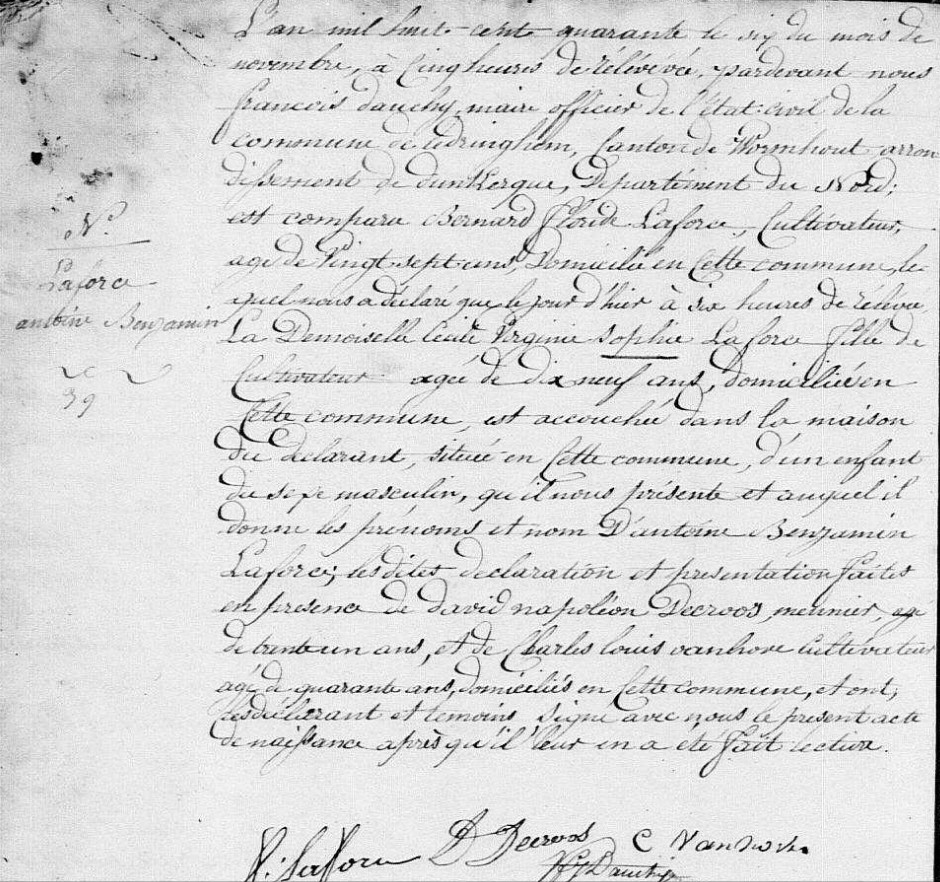 L'an mil huit cent quarante le six du mois de
novembre, à Cinq heures de rélévée, pardevant nous
francois dauchy, maire officier de l'état-civil de la
commune de Ledringhem, Canton de Wormhout arron
dissement de dunkerque, Département du Nord;
est comparu Bernard Floride Laforce, Cultivateur,
agé de Vingt-sept ans, Domicilié en Cette commune, le
quel nous a déclaré que le jour d'hier à six heures de rélévée
La Demoiselle Cécile Virginie Sophie Laforce fille de
Cultivateur agée de dix neuf ans, domiciliée en
Cette commune, est accouchée dans la maison
Du déclarant, située en Cette commune, d'un enfant
du sexe masculin, qu'il nous présente et auquel il
donne les prénoms et nom D'antoine Benjamin
Laforce; lesdites declaration et presentation faites
en presence de david napoléon Decroos, meunier, agé
de trente un ans, et de Charles louis vanhove Cultivateur
agé de quarante ans, domiciliés en Cette commune, et ont,
les déclarant et temoins signé avec nous le present acte
de naissance après qu'il leur en a été fait lecture.
N.°
Laforce
antoine Benjamin
39
D Decroos C Vanhove
Dauchy